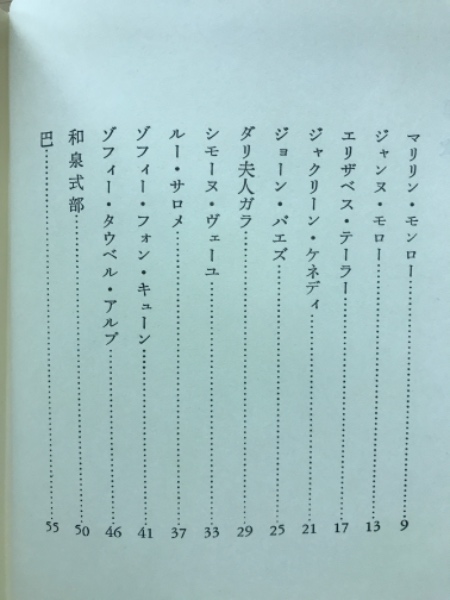 マリリン・モンロー……9
ジャンヌ・モロー……13
エリザベス・テーラー……17
ジャクリーン・ケネディ……21
ジョーン・バエズ……25
ダリ夫人ガラ……29
シモーヌ・ヴェーユ……33
ルー・サロメ……37
ゾフィー・フォン・キューン……41
ゾフィー・タウベル・アルプ……46
和泉式部……50
巴……55